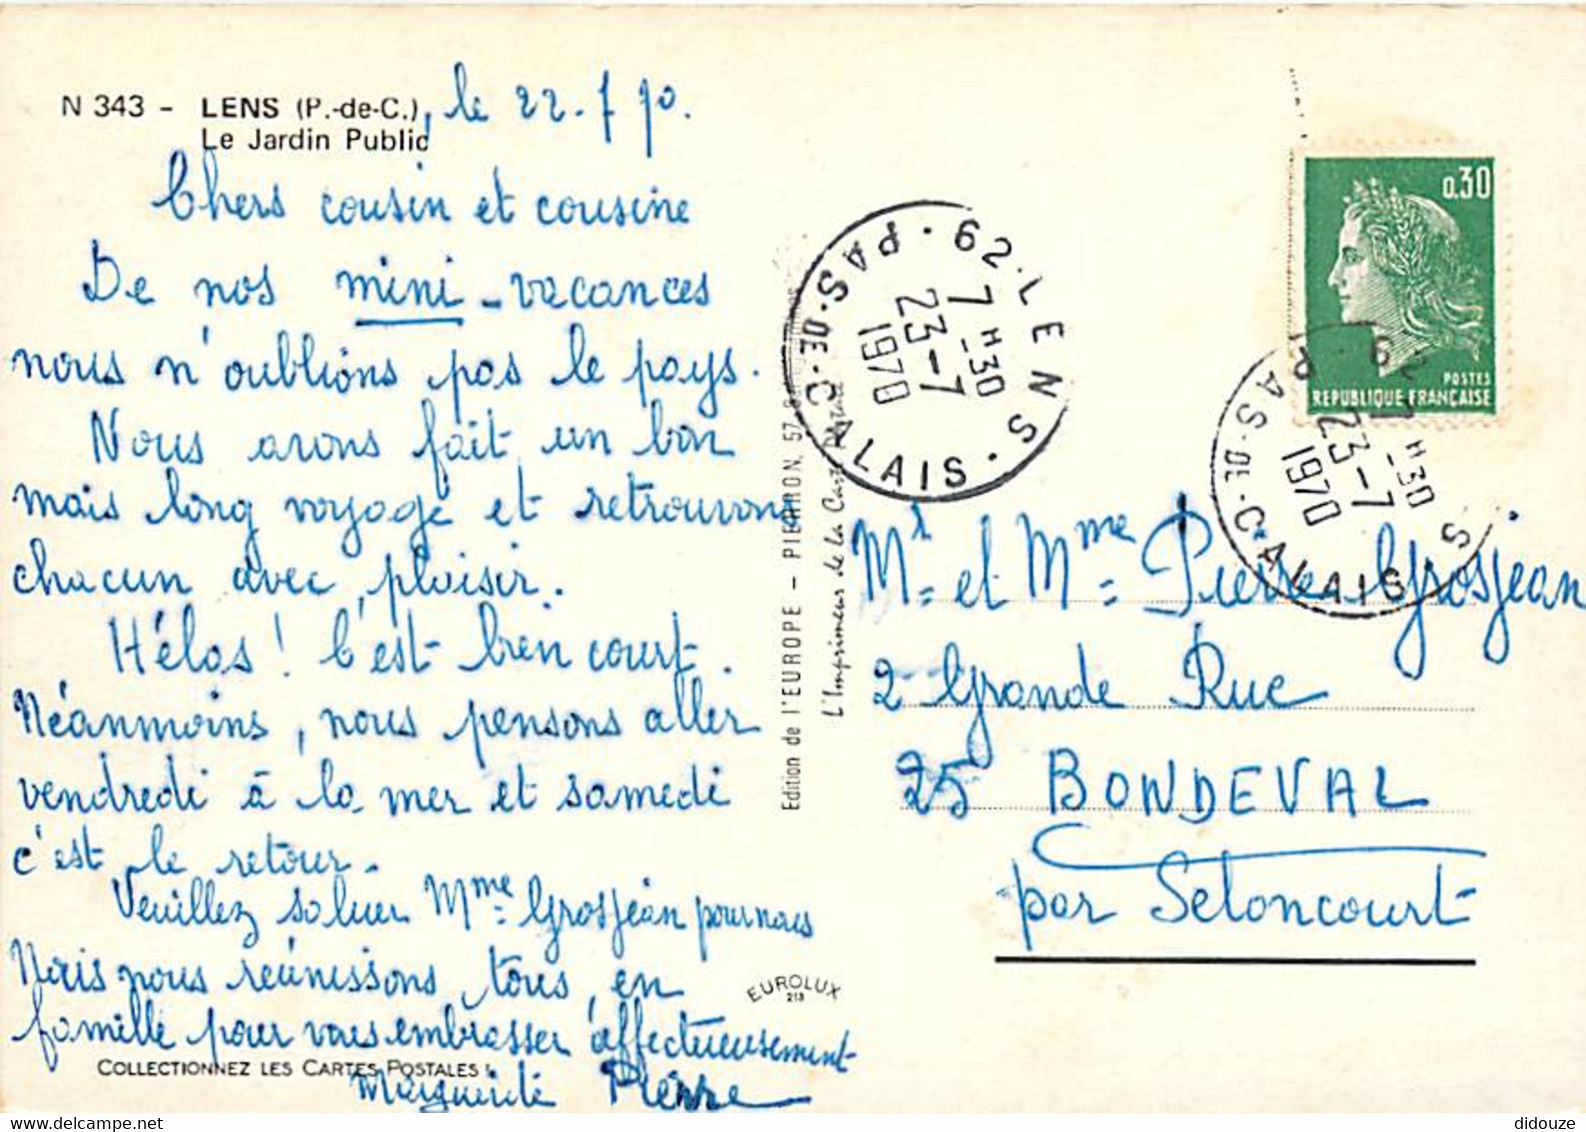 N 343 - LENS (P.-de-C.), le 22.7 70.
Le Jardin Public
Chers cousin et cousine
De nos mini-vacances
nous n'oublions pas le pays.
Nous avons fait un bon
mais long voyage et retrouvons
chacun avec plaisir.
Hélas! C'est bien court.
Néanmoins, nous pensons aller
vendredi à la mer et samedi
c'est le retour.
Veuillez saluer Mme Grosjean pour nous
Nous nous réunissons tous, en
famille pour vous embrasser affectueusement
Marguerite Pierre
COLLECTIONNEZ LES CARTES POSTALES !
EUROLUX
213
Edition de l'EUROPE - PIERRON, 57
L'Imprimeur de la Carte
62 · LENS · PAS-DE-CALAIS
7 H 30
23-7
1970
0,30
POSTES
REPUBLIQUE FRANÇAISE
62
PAS-DE-CALAIS
7 H 30
23-7
1970
Mr et Mme Pierre Grosjean
2 Grande Rue
25 BONDEVAL
par Seloncourt
didouze